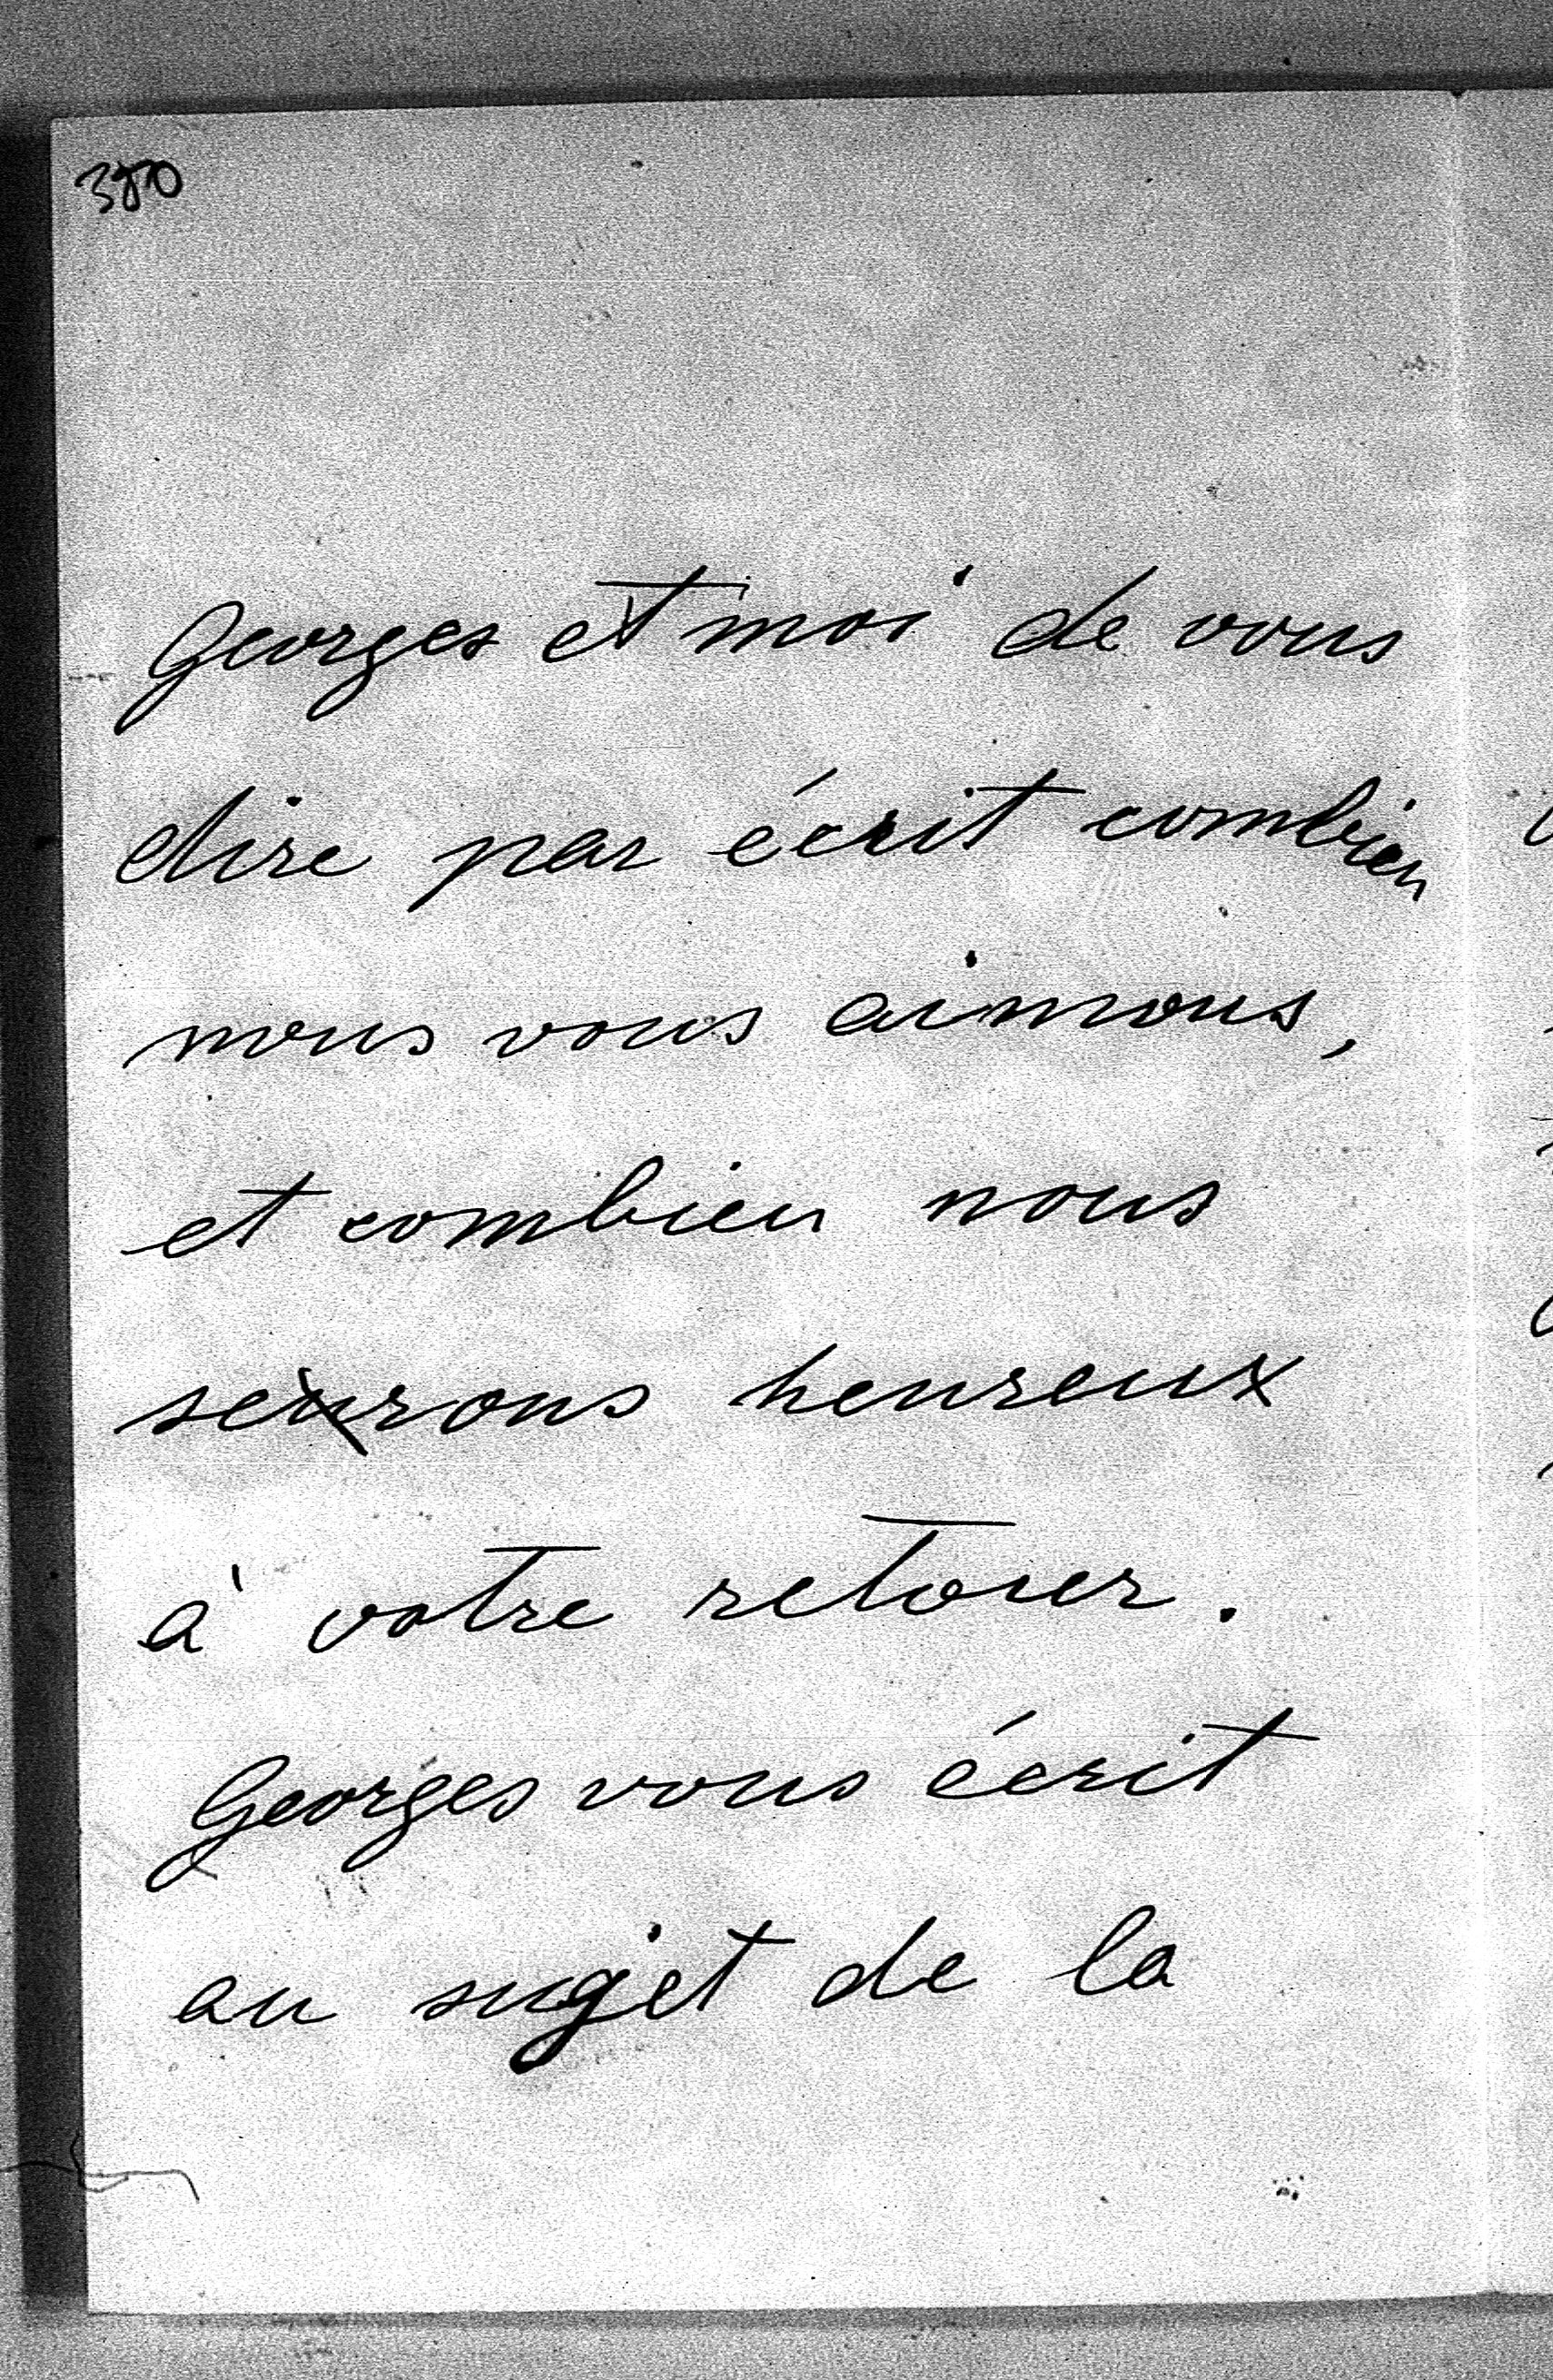 380
Georges et moi de vous
dire par écrit combien
nous vous aimons,
et combien nous
serons heureux
à votre retour.
Georges vous écrit
au sujet de la